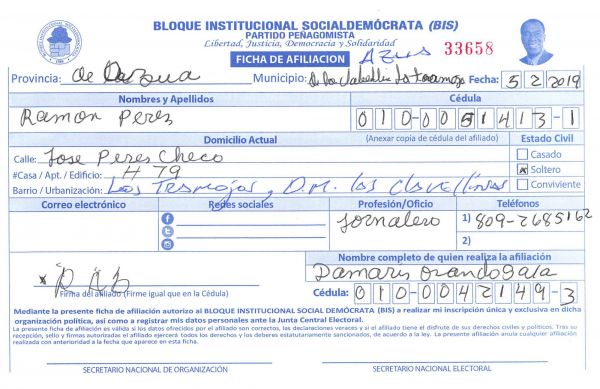 BLOQUE INSTITUCIONAL SOCIALDEMÓCRATA (BIS)
PARTIDO PEÑAGOMISTA
Libertad, Justicia, Democracia y Solidaridad
FICHA DE AFILIACION Azua 33658
Provincia: de Azua Municipio: Fecha: 5 2 2019
Nombres y Apellidos Cédula
Ramon Peres 010-0051413-1
Domicilio Actual (Anexar copia de cédula del afiliado) Estado Civil
Calle: Jose Peres Checo Casado
#Casa / Apt. / Edificio: # 79 x Soltero
Barrio / Urbanización: Las D.M. las Clavellinas Conviviente
Correo electrónico Redes sociales Profesión/Oficio Teléfonos
Jornalero 1) 809-2685162
2)
Nombre completo de quien realiza la afiliación
Damaris
Firma del afiliado (Firme igual que en la Cédula) Cédula: 010-0042149-3
Mediante la presente ficha de afiliación autorizo al BLOQUE INSTITUCIONAL SOCIAL DEMÓCRATA (BIS) a realizar mi inscripción única y exclusiva en dicha
organización política, así como a registrar mis datos personales ante la Junta Central Electoral.
La presente ficha de afiliación es válida si los datos ofrecidos por el afiliado son correctos, las declaraciones veraces y si el afiliado tiene el disfrute de sus derechos civiles y políticos. Tras su
recepción, sello y firmas autorizadas el afiliado ejercerá todos los derechos y los deberes estatutariamente sancionados, de acuerdo a la ley. La presente afiliación anula cualquier afiliación
realizada con anterioridad a la fecha que aparece en esta ficha.
SECRETARIO NACIONAL DE ORGANIZACIÓN SECRETARIO NACIONAL ELECTORAL